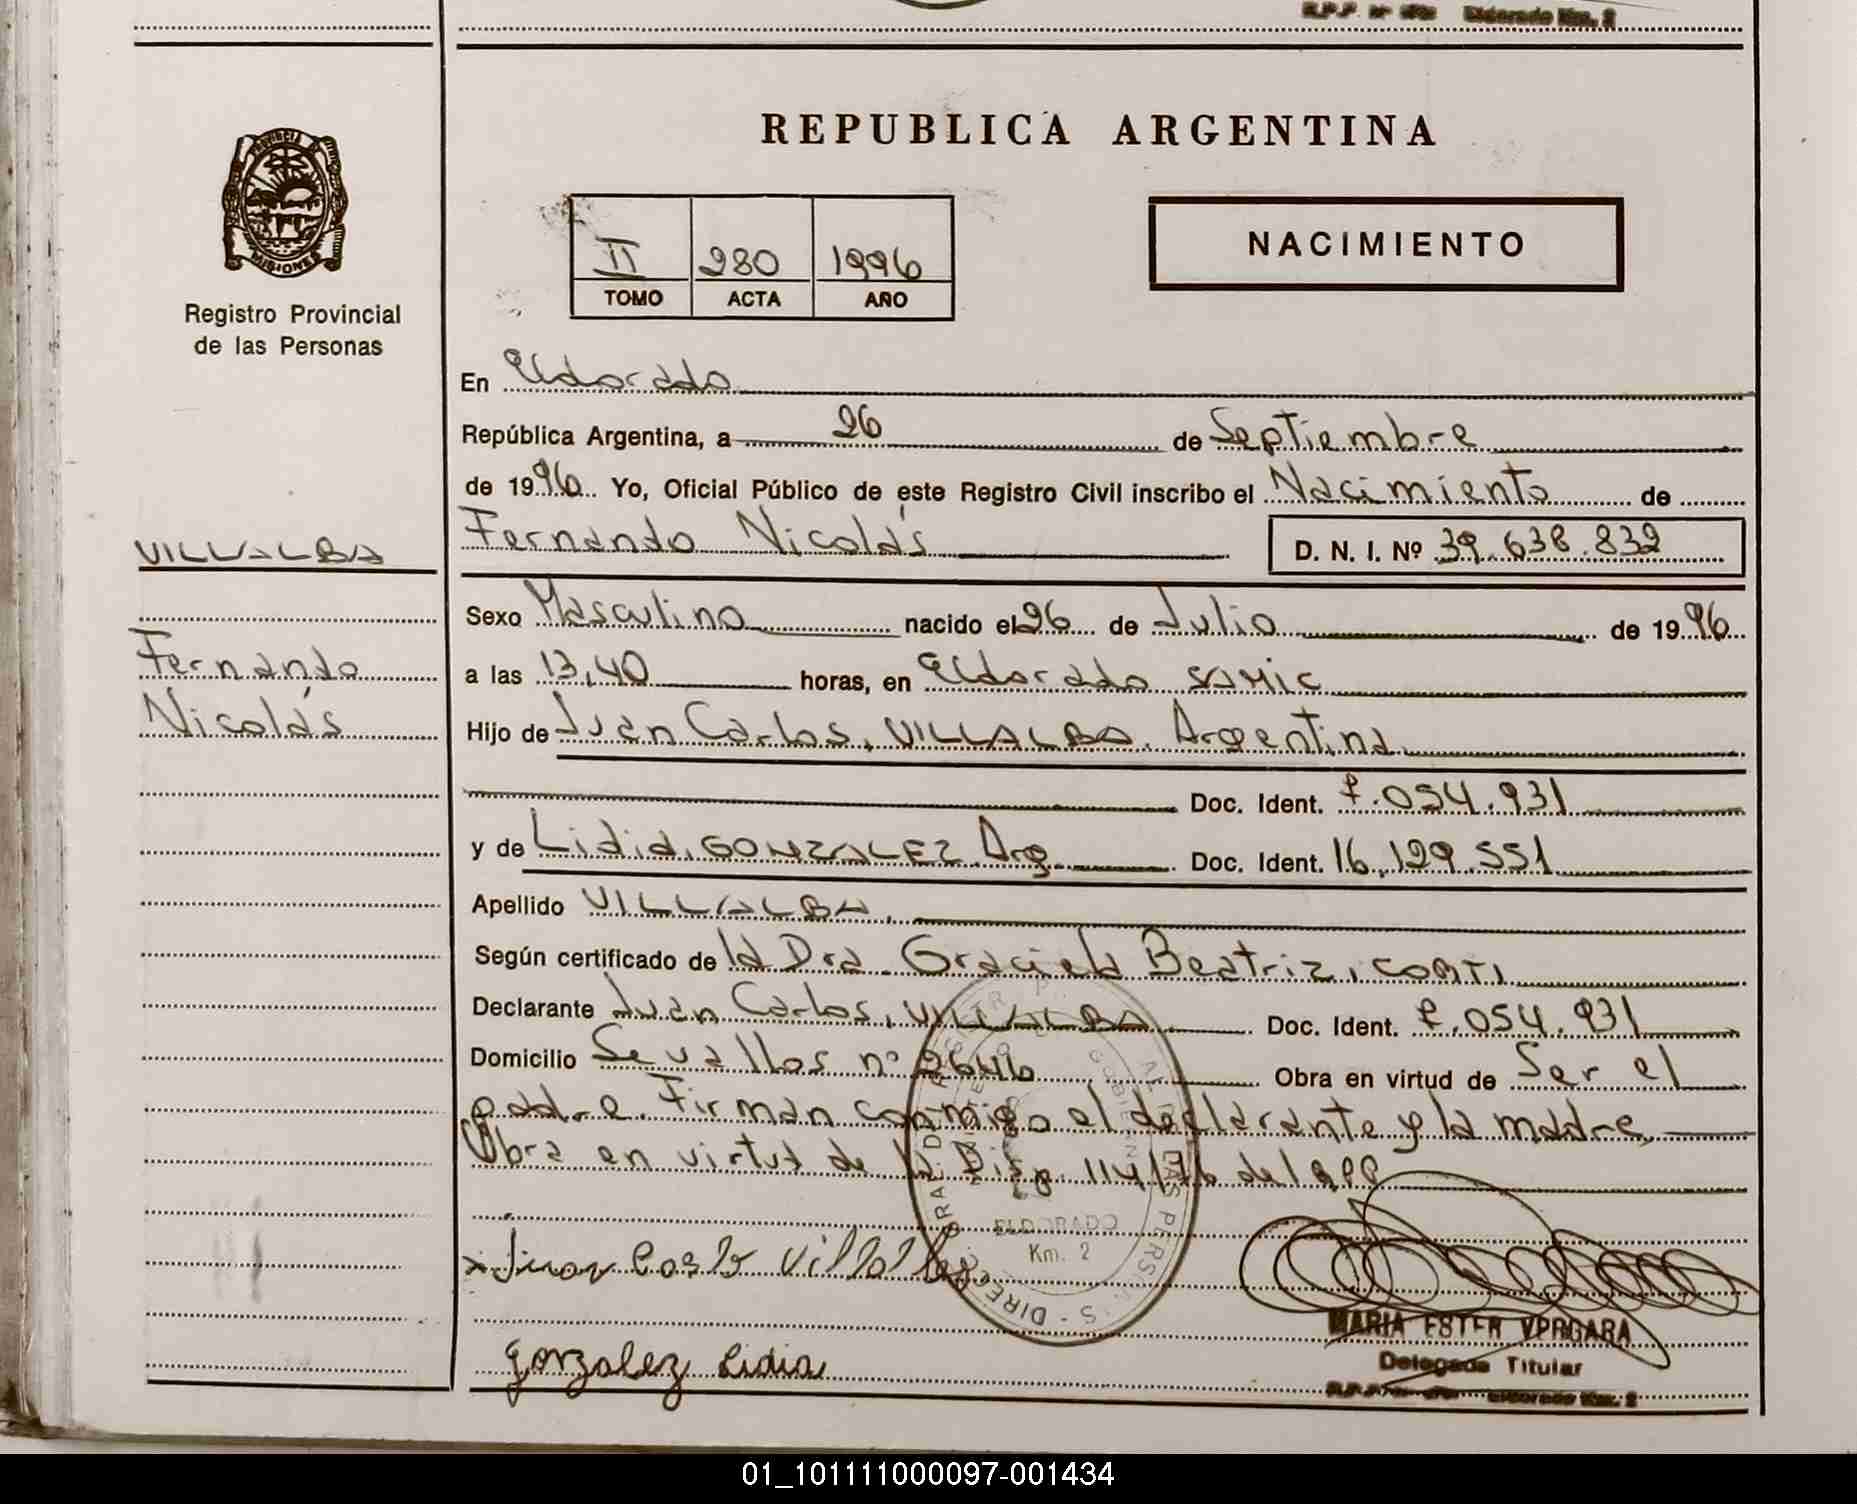 R.P.P. Nº Eldorado Km. 2
REPUBLICA ARGENTINA
PROVINCIA D MISIONES
Registro Provincial
de las Personas
II 280 1996
TOMO ACTA AÑO
NACIMIENTO
En Eldorado
República Argentina, a 26 de Septiembre
de 1996 Yo, Oficial Público de este Registro Civil inscribo el Nacimiento de
Fernando Nicolás D. N. I. Nº 39.638.832
VILLALBA
Fernando
Nicolás
Sexo Masculino nacido el 26 de Julio de 1996
a las 13,40 horas, en Eldorado SAMIC
Hijo de Juan Carlos, VILLALBA. Argentina
Doc. Ident. .054.931
y de Lidia, GONZALEZ Arg. Doc. Ident. 16.129.551
Apellido VILLALBA.
Según certificado de la Dra. Graciela Beatriz, CORTI
Declarante Juan Carlos, VILLALBA Doc. Ident. .054.931
Domicilio Sevallos nº 2646 Obra en virtud de Ser el
padre. Firman conmigo el declarante y la madre
Obra en virtud de la Disp. 114/76 del RPP
ELDORADO
Km. 2
x Juan Carlo Villalba
MARIA ESTER VERGARA
Delegada Titular
R.P.P. Eldorado Km. 2
gonzalez Lidia
01_101111000097-001434